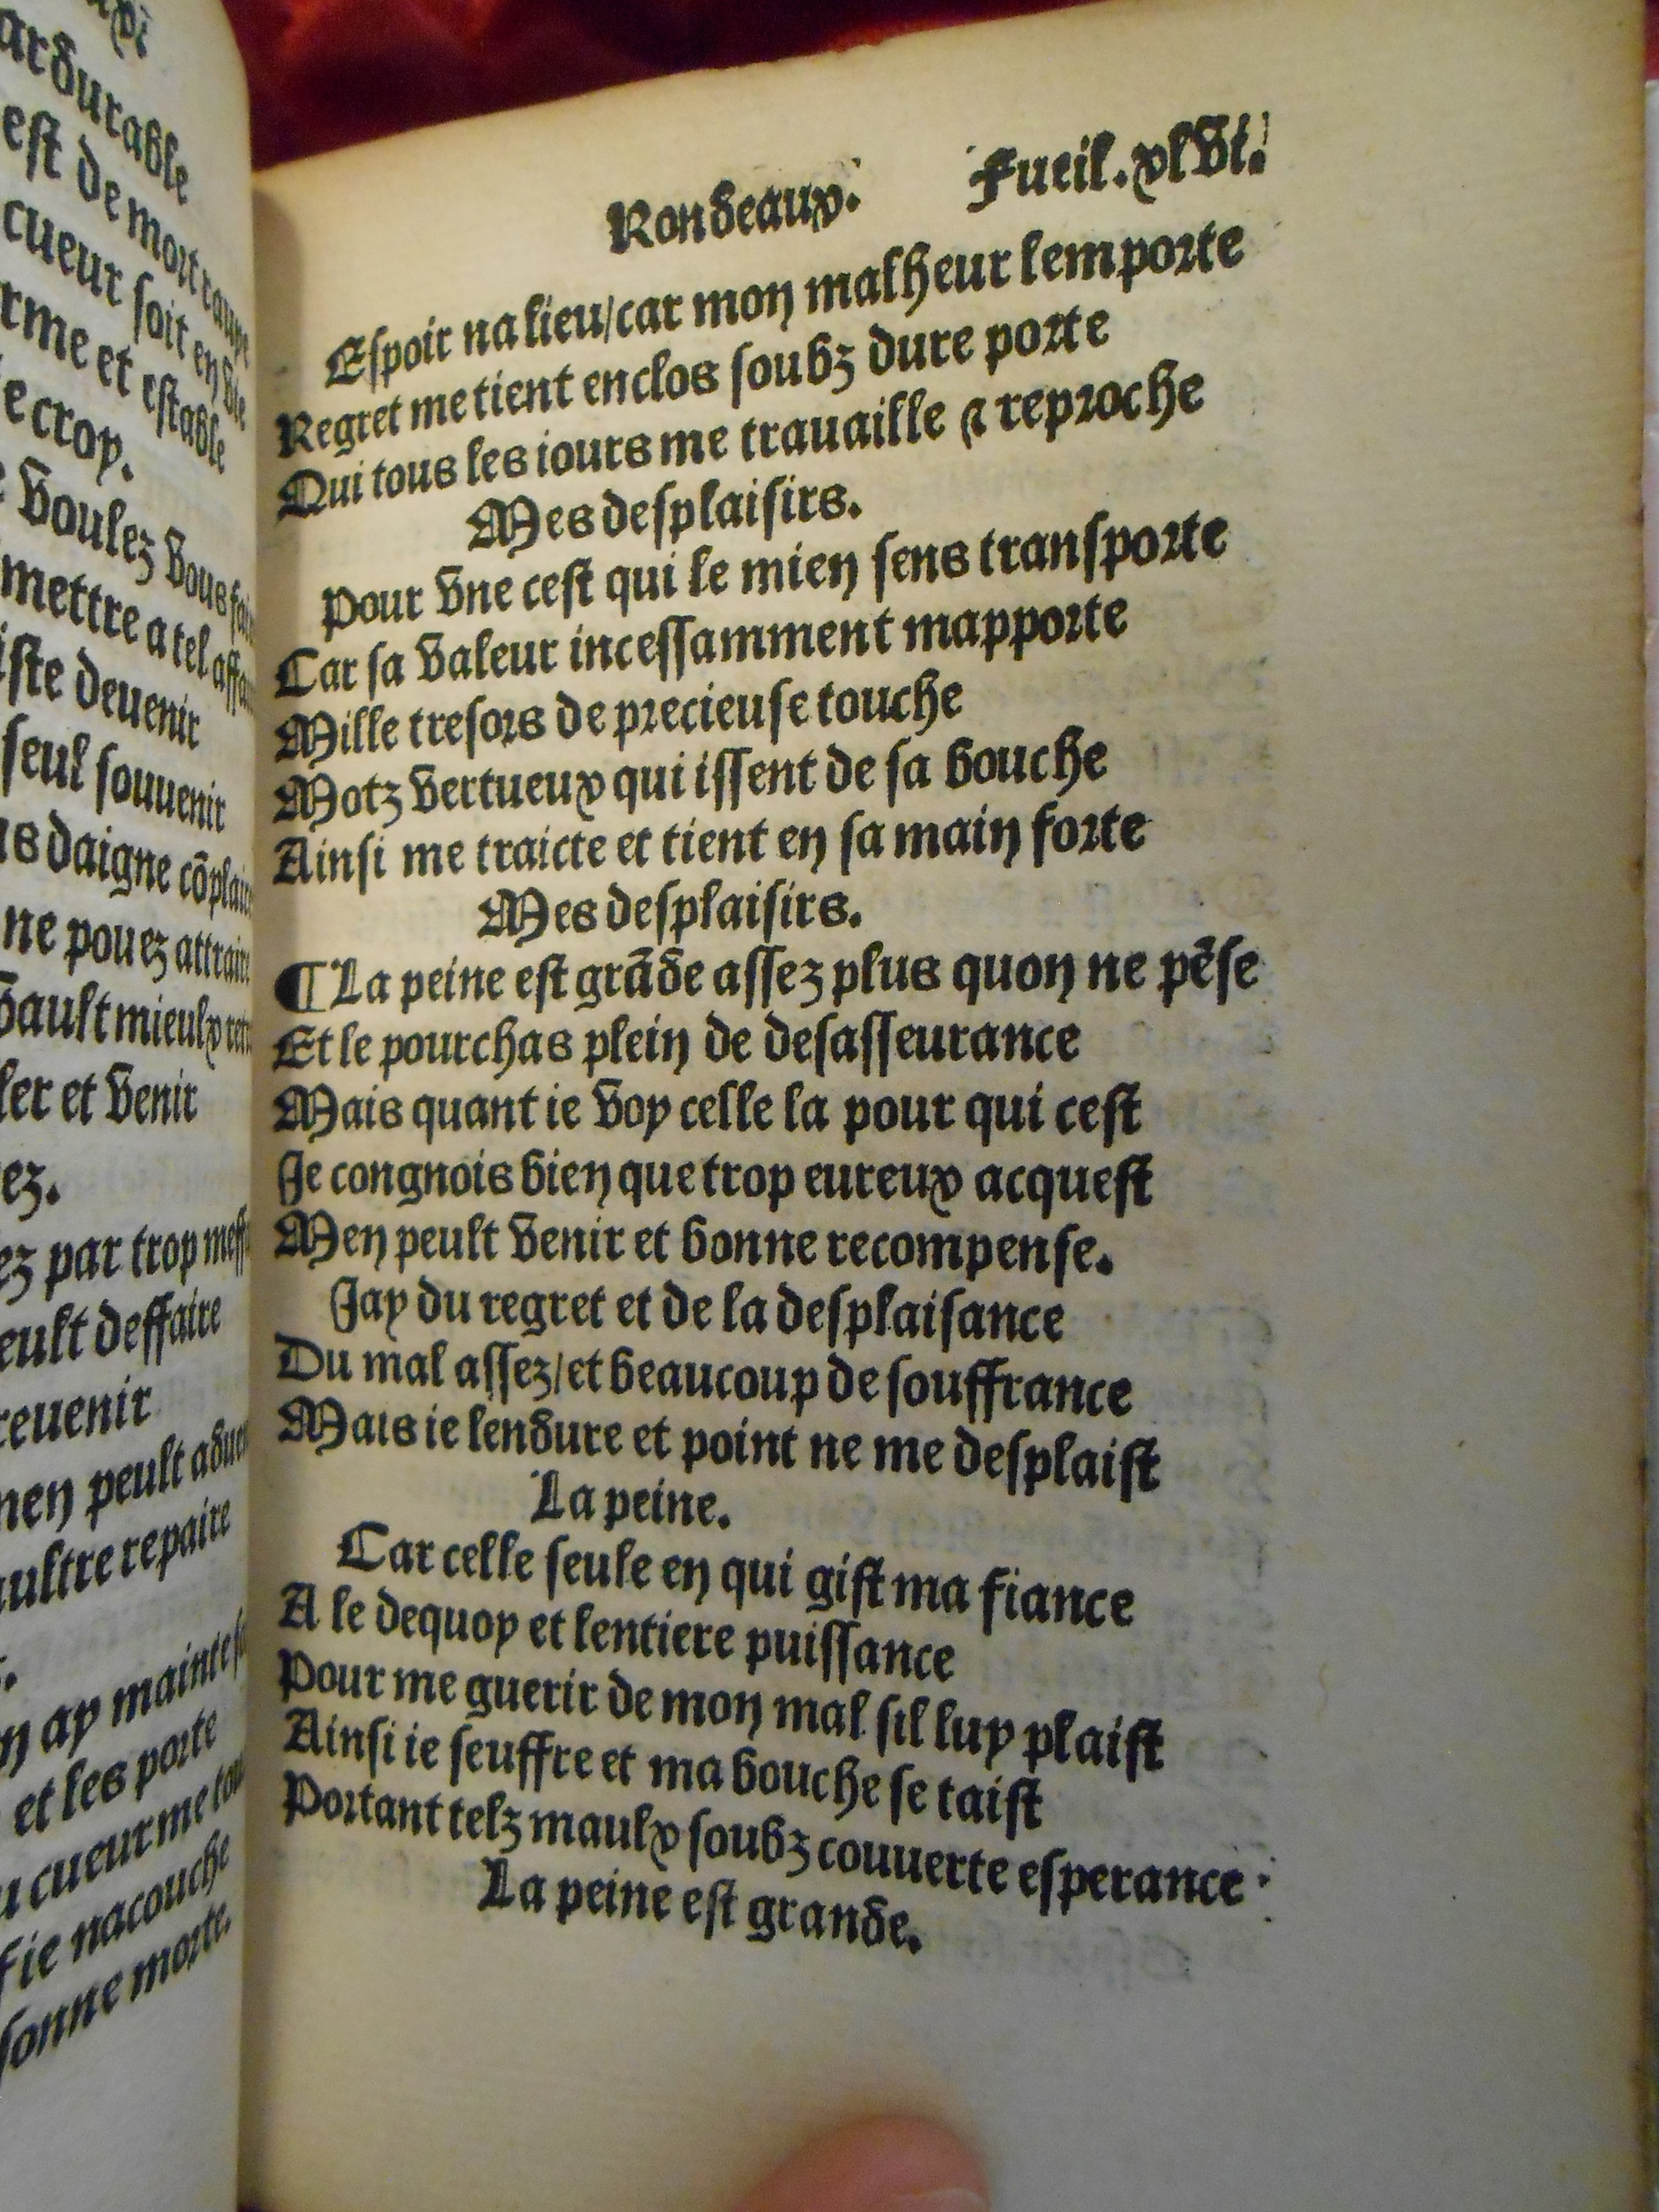 ardurable
est de mort
cueur soit en
rme et estable
e croy.
Voulez vous
mettre a tel
iste deuenir
seul souuenir
daigne cõplaire
ne pouez attraire
vault mieulx
ler et venir
ez.
ez par trop
eult deffaire
reuenir
nen peult
aultre repaire
n ay mainte
et les porte
cueur me
ie nacouche
sonne morte.
Rondeaux. Fueil. xlvi.
Espoir na lieu/car mon malheur lemporte
Regret me tient enclos soubz dure porte
Qui tous les iours me trauaille & reproche
Mes desplaisirs.
Pour vne cest qui le mien sens transporte
Car sa valeur incessamment mapporte
Mille tresors de precieuse touche
Motz vertueux qui issent de sa bouche
Ainsi me traicte et tient en sa main forte
Mes desplaisirs.
¶ La peine est grãde assez plus quon ne pẽse
Et le pourchas plein de desasseurance
Mais quant ie voy celle la pour qui cest
Je congnois bien que trop eureux acquest
Men peult venir et bonne recompense.
Jay du regret et de la desplaisance
Du mal assez/et beaucoup de souffrance
Mais ie lendure et point ne me desplaist
La peine.
Car celle seule en qui gist ma fiance
A le dequoy et lentiere puissance
Pour me guerir de mon mal sil luy plaist
Ainsi ie seuffre et ma bouche se taist
Portant telz maulx soubz couuerte esperance
La peine est grande.